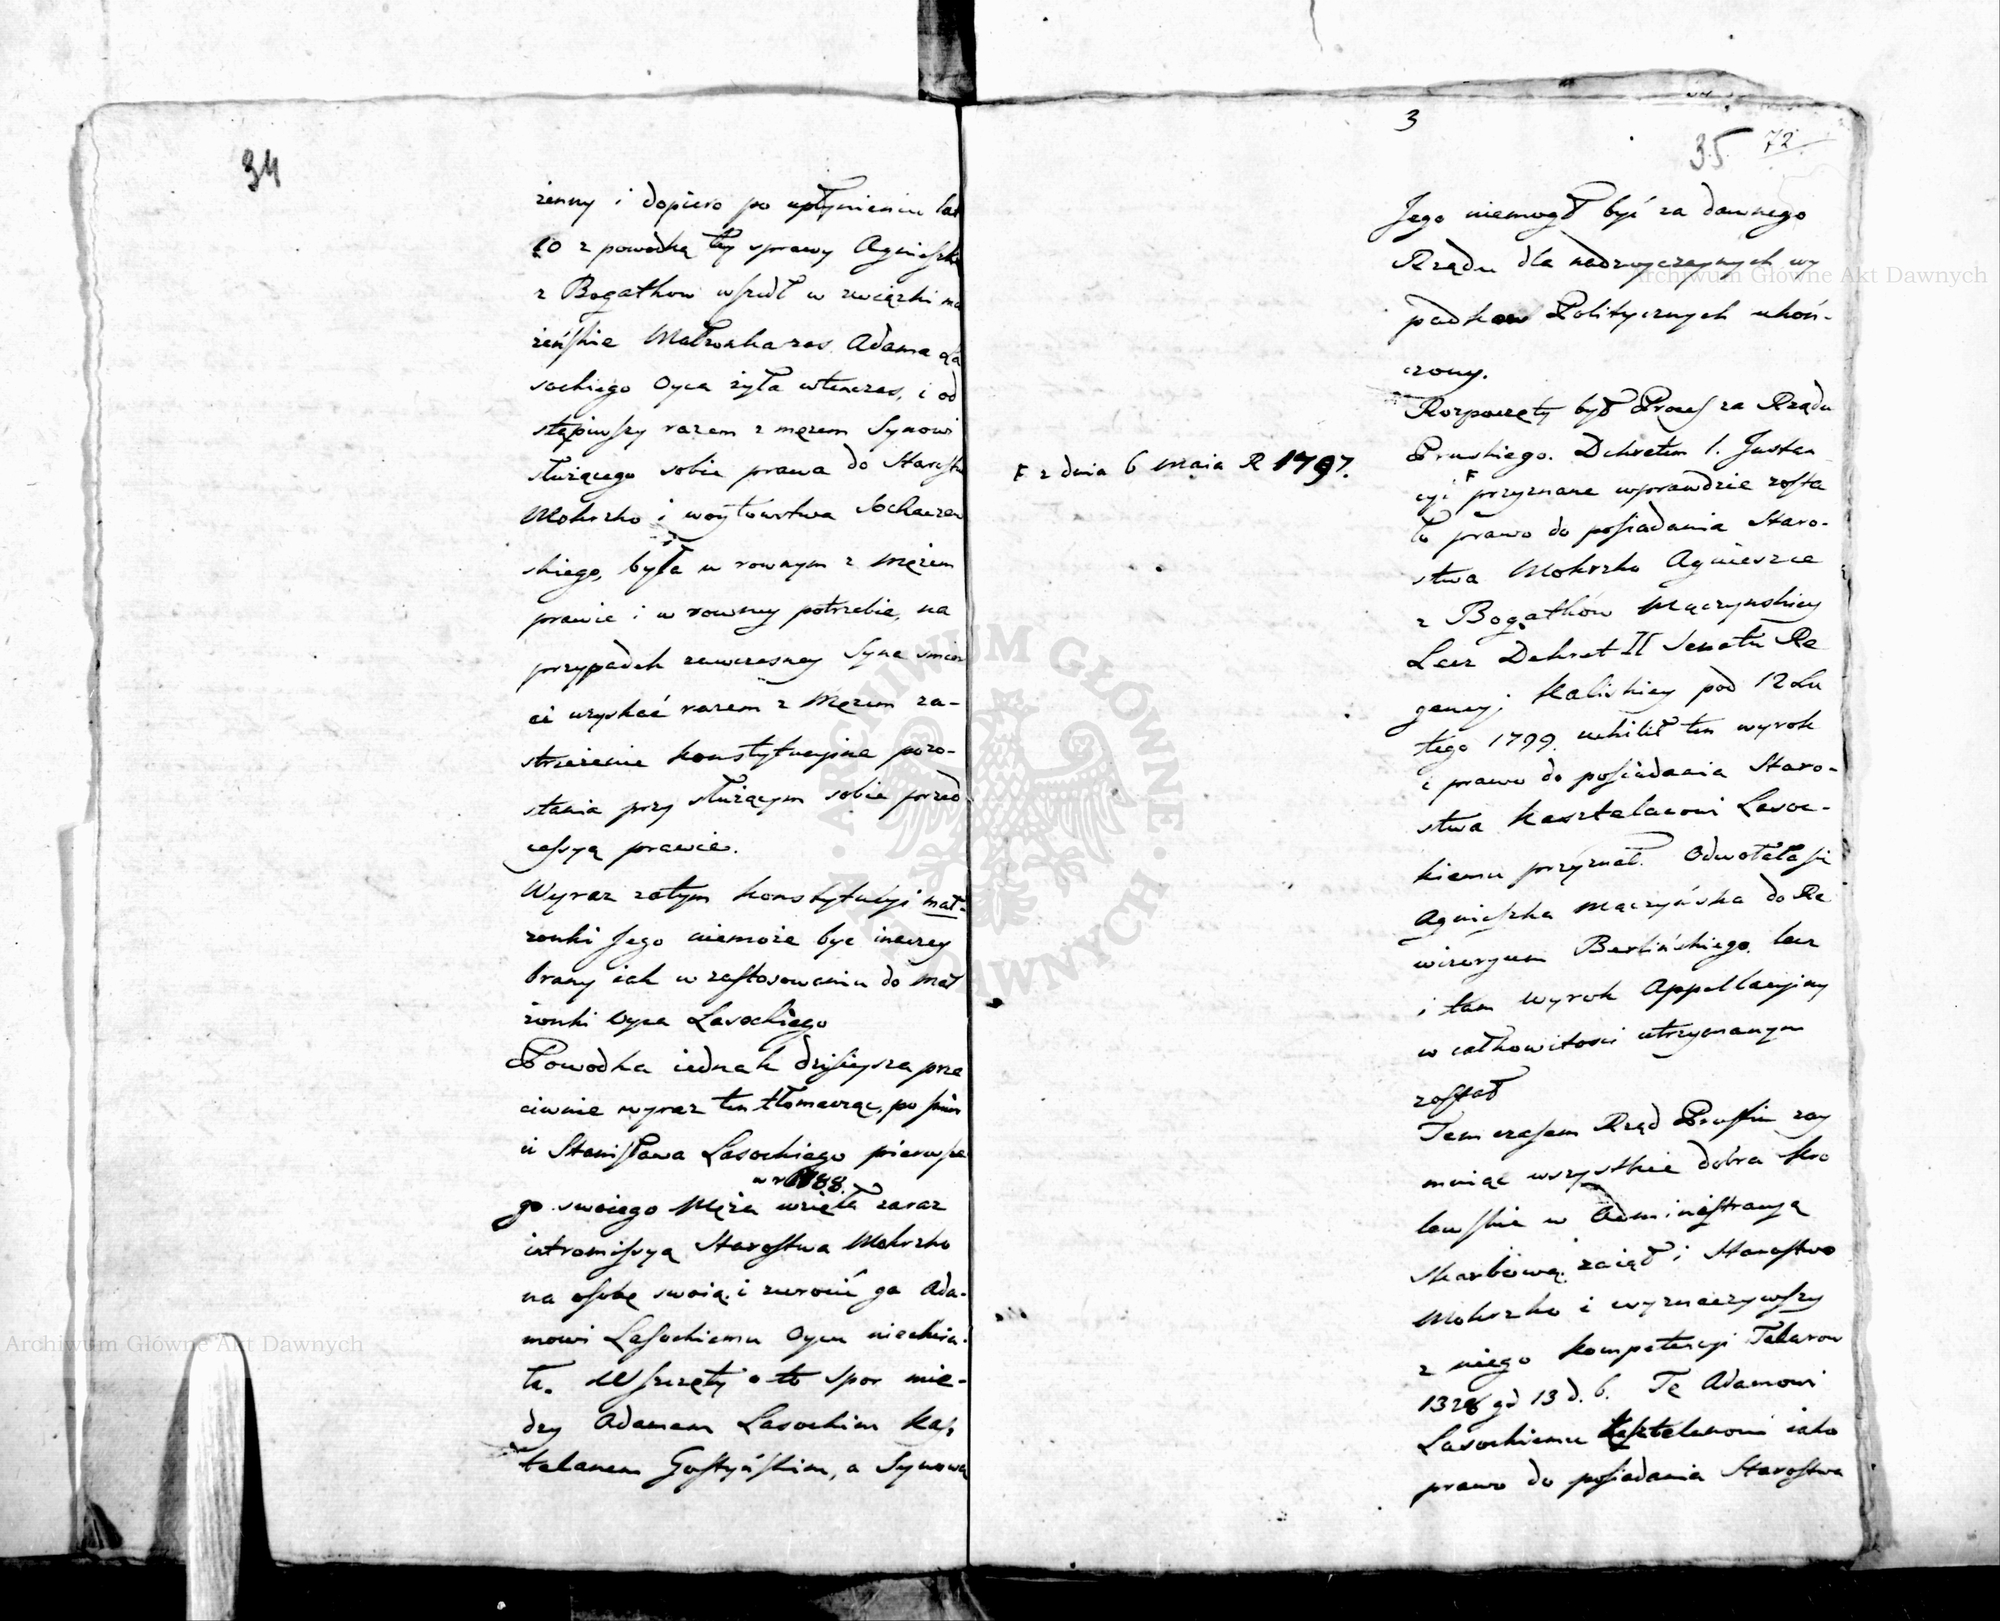 34
żenny i dopiero po upłynieniu lat
10 z powodką tey sprawy Agnieszką
z Bogatkow wszedł w związki ma
żeńskie Małżonka zas Adama La
sockiego Oyca żyła wtenczas, i od
stąpiwszy razem z mężem Synowi
służącego sobie prawa do Starostw
Mokrzko i woytowstwa Sochaczew
skiego, była w rownym z Mężem
prawie i w rowney potrzebie, na
przypadek zawczesney Syna śmier
ci uzyskać razem z Mężem za-
strzeżenie konstytucyine pozo-
stania przy służącym sobie przed
cessyą prawie.
Wyraz zatym konstytucyi mał-
żonki Jego niemoże byc inaczey
brany iak w zastosowaniu do mał
żonki Oyca Lasockiego
Powodka iednak dzisieysza prze
ciwnie wyraz ten tłomacząc, po śmier
ci Stanisława Lasockiego pierwsze
w r. 1788.
go swoiego Męża wzięła zaraz
intromissyą Starostwa Mokrzko
na osobę swoią i zwrocić go Ada-
mowi Lasockiemu Oycu niechcia-
ła. Wszczęty o to spor mię-
dzy Adamem Lasockim Kasz
telanem Gostyńskim, a Synową
3
35 72
Jego niemogł być za dawnego
Rządu dla nadzwyczaynych wy
padkow Politycznych ukoń-
czony.
Rozpoczęty był Process za Rządu
Pruskiego. Dekretem 1. Instan
F z dnia 6 Maia R 1797.
cyi F przyznane wprawdzie zosta
ło prawo do posiadania Staro-
stwa Mokrzko Agnieszce
z Bogatków Mączynskiey
Lecz Dekret II Senatu Re
gencyi Kaliskiey pod 12 Lu
tego 1799. uchilił ten wyrok
i prawo do posiadania Staro-
stwa Kasztelanowi Lasoc-
kiemu przyznał. Odwołała się
Agnieszka Mączyńska do Re
wizoryum Berlińskiego, lecz
i tam wyrok Appellacyiny
w całkowitosci utrzymanym
został
Tem czasem Rząd Pruski zay
muiąc wszystkie dobra Kro
lewskie w Administracyą
Skarbową zaiął i Starostwo
Mokrzko i wyznaczywszy
z niego kompetencyi Talarow
1328 gd 13 d. 6. Tę Adamowi
Lasockiemu Kasztelanowi iako
prawo do posiadania Starostwa
Archiwum Główne Akt Dawnych
Archiwum Główne Akt Dawnych
ARCHIWUM GŁÓWNE · AKT DAWNYCH ·